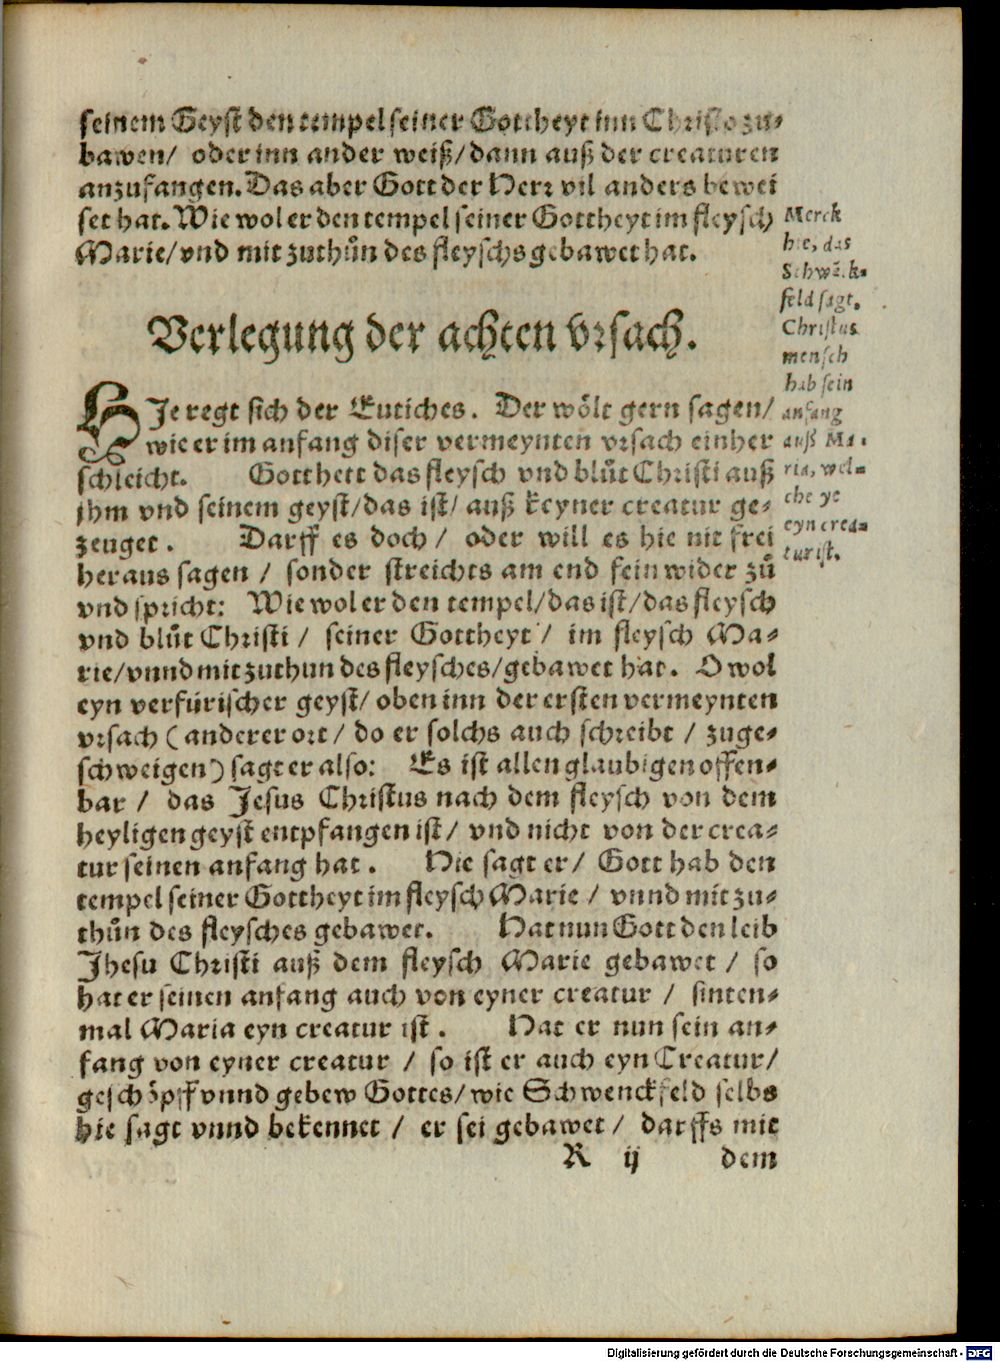 seinem Geyst den tempel seiner Gottheyt inn Christo zu-
bawen/ oder inn ander weiß/dann auß der creaturen
anzufangen. Das aber Gott der Herr vil anders bewei
set hat. Wie wol er den tempel seiner Gottheyt im fleysch
Marie/vnd mit zuthůn des fleyschs gebawet hat.
Merck
hie, das
Schwẽck-
feld sagt,
Christus
mensch
hab sein
anfang
auß Ma-
ria, wel-
che ye
eyn crea-
tur ist.
Verlegung der achten vrsach.
HJe regt sich der Eutiches. Der wölt gern sagen/
wie er im anfang diser vermeynten vrsach einher
schleicht. Gott hett das fleysch vnd blůt Christi auß
jhm vnd seinem geyst/das ist/ auß keyner creatur ge-
zeuget. Darff es doch/ oder will es hie nit frei
heraus sagen / sonder streichts am end fein wider zů
vnd spricht: Wie wol er den tempel/das ist/das fleysch
vnd blůt Christi / seiner Gottheyt / im fleysch Ma-
rie/vnnd mit zuthun des fleysches/gebawet hat. O wol
eyn verfürischer geyst/ oben inn der ersten vermeynten
vrsach (anderer ort/ do er solchs auch schreibt / zuge-
schweigen) sagt er also: Es ist allen glaubigen offen-
bar / das Jesus Christus nach dem fleysch von dem
heyligen geyst entpfangen ist/ vnd nicht von der crea-
tur seinen anfang hat. Hie sagt er/ Gott hab den
tempel seiner Gottheyt im fleysch Marie / vnnd mit zu-
thůn des fleysches gebawet. Hat nun Gott den leib
Jhesu Christi auß dem fleysch Marie gebawet / so
hat er seinen anfang auch von eyner creatur / sinten-
mal Maria eyn creatur ist. Hat er nun sein an-
fang von eyner creatur / so ist er auch eyn Creatur/
geschöpff vnnd gebew Gottes/ wie Schwenckfeld selbs
hie sagt vnnd bekennet / er sei gebawet / darffs mit
R ij dem
Digitalisierung gefördert durch die Deutsche Forschungsgemeinschaft - DFG